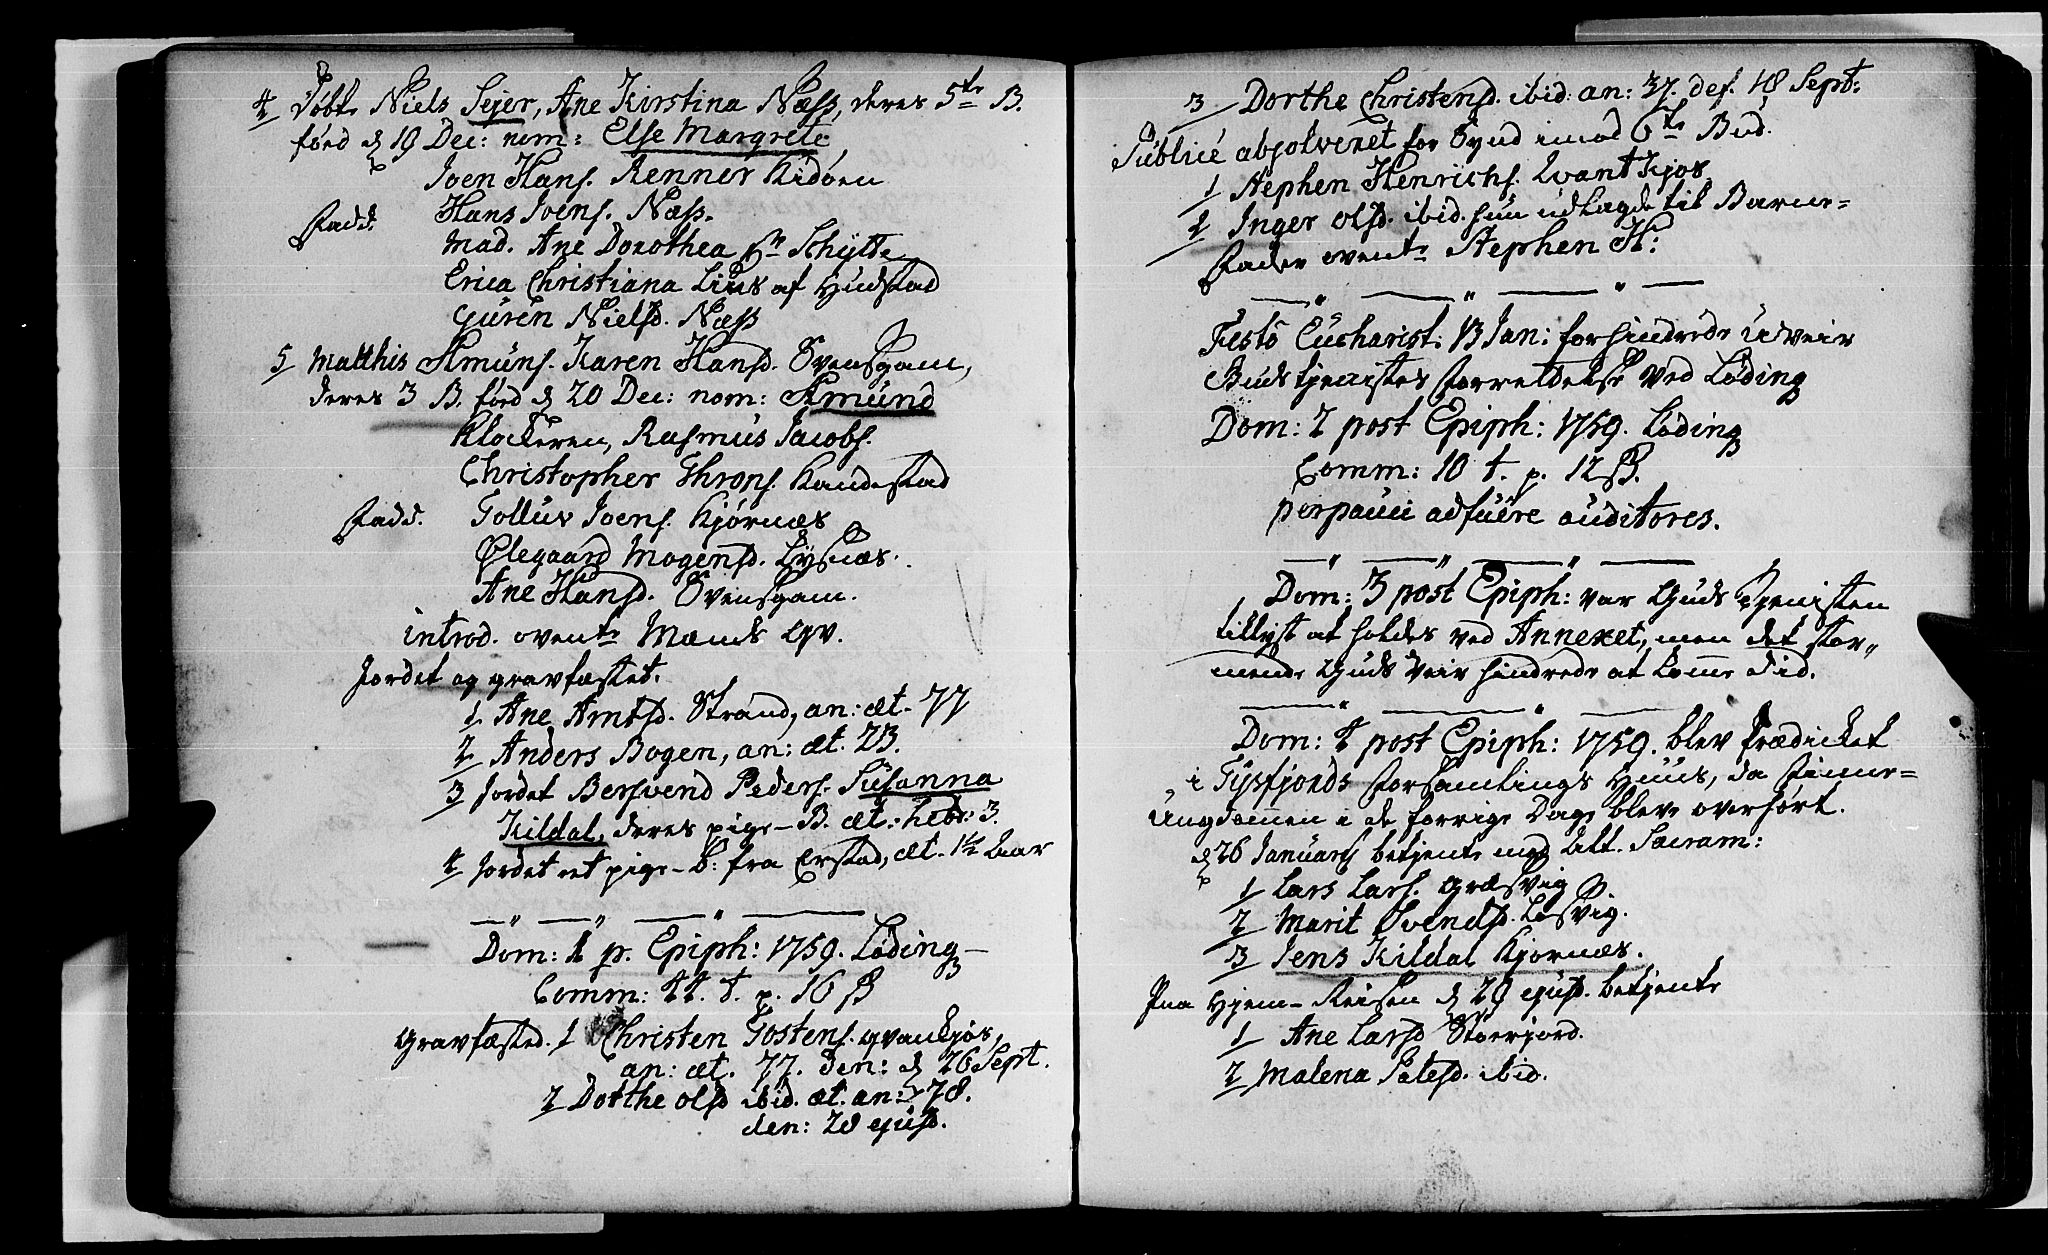 4 Døbt Niels Sejer, Ane Kirstina Næss, deres 5te B.
fød d 19 Dec: nom: Else Margrete
Joen Hans. Renner Kidøen
Fadd. Hans Joens. Næss.
Mad. Ane Dorothea Sn Schytte
Erica Christiana Lius af Hudstad
Guren Nielsd. Næss
5 Matthis Amuns. Karen Hansd. Svensgam,
deres 3 B. fød d 20 Dec: nom: Amund
Klockeren, Rasmus Jacobs.
Christopher Throns. Kandestad
Fadd. Tollus Joens. Kjørnæs
Ølegaard Mogensd. Lysnæs.
Ane Hansd. Svensgam.
introd. ovente Mands Qv.
Jordet og gravfæstet.
1 Ane Arntsd. Strand, an: æt. 77
2 Anders Bogen, an: æt. 23.
3 Jordet Bersvend Peders. Susanna
Kildal, deres pige-B. æt: hebr: 3.
4 Jordet et pige-b: fra Erstad, æt. 1½ Aar
Dom: 1 p. Epiph: 1759. Løding
Comm: 44. t. p. 16 ß
Gravfæsted. 1 Christen Tostens. Qvankjøs,
an: æt. 77. den: d 26 Sept.
2 Dorthe Olsd ibid. æt. an: 78.
den: 28 ejusd.
3 Dorthe Christensd. ibid: an: 37. def. 18 Sept:
Publicé absolveret for Synd imod 6te Bud.
1 Stephen Henrichs. Qvantkjos
2 Inger Olsd. ibid. hun udlagde til Barne=
Fader ovente Stephen H:
Festo Eucharist. 13 Jan: forhindrede Uveir
Guds tjenistes Forrettelse ved Løding
Dom: 2 post Epiph: 1759. Løding
Comm: 10 t. p. 12 ß.
perpauci adfuere auditores.
Dom: 3 post Epiph: var Guds Tjenisten
tillyst at holdes ved Annexet, men det stor„
mende Guds Veir hindrede at kome did.
Dom: 4 post Epiph: 1759. blev prædicket
i Tysfjords Forsamlings Huus, da Finne=
Ungdommen i de forrige Dage blev overhørt.
d 26 Januarij betjente med Alt. Sacram:
1 Lars Lars. Græsvig
2 Marit Svendsd. Løsvig.
3 Jens Kildal Kjornæs.
Paa Hjem-Reisen d 29 ejusd. betjente
1 Ane Larsd Storrjord.
2 Malena Patesd. ibid.